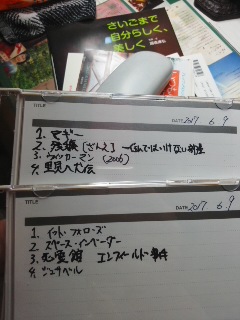 さいごまで
自分らしく、
美しく
TITLE
DATE 2017 6.9
1. マギー
2. 残穢[ざんえ] ―住んではいけない部屋
3. ウィッカーマン (2006)
4. 里見八犬伝
TITLE
2017. 6.9
1. イット・フォローズ
2. スペース・インベーダー
3. 死霊館 エンフィールド事件
4. ジェサベル